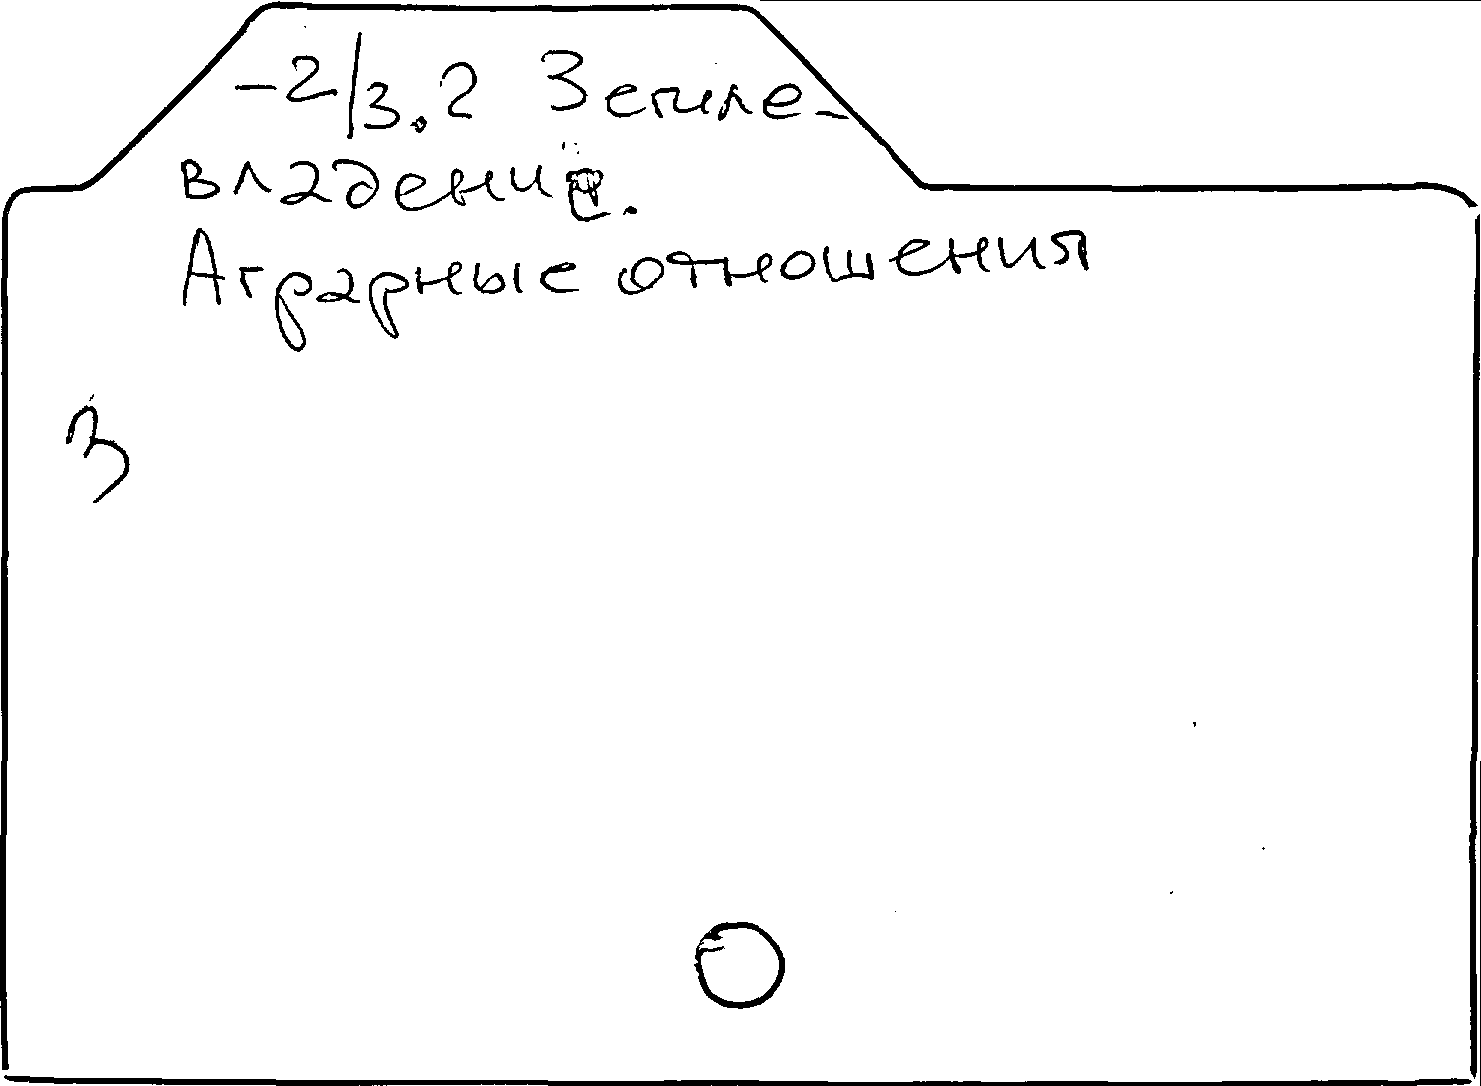 -2/3.2 Земле-
владение.
Аграрные отношения
3